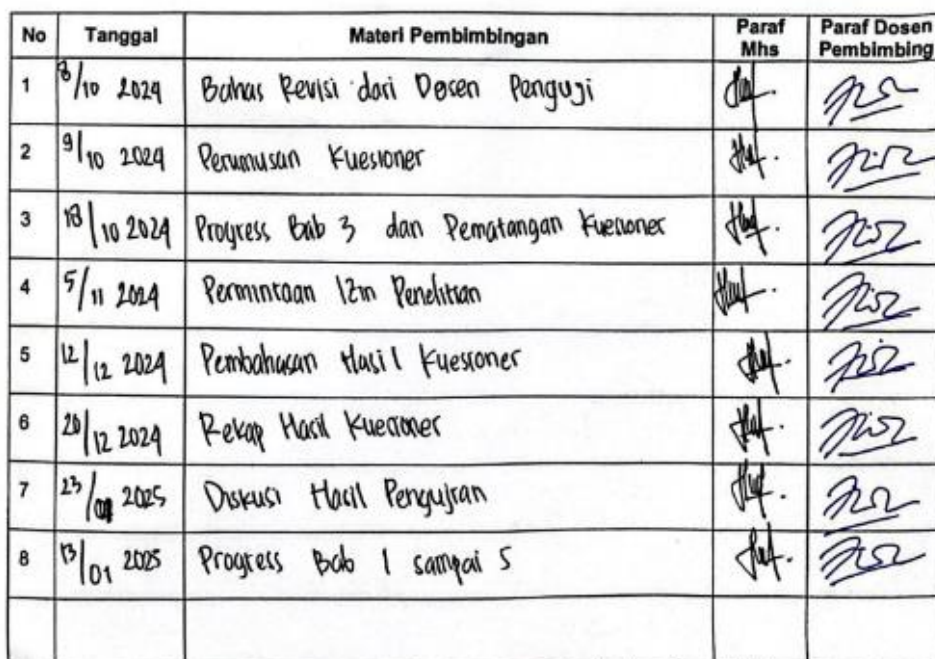 No Tanggal Materi Pembimbingan Paraf Mhs Paraf Dosen Pembimbing
1 8/10 2024 Bahas Revisi dari Dosen Penguji
2 9/10 2024 Perumusan Kuesioner
3 18/10 2024 Progress Bab 3 dan Pematangan Kuesioner
4 5/11 2024 Permintaan Izin Penelitian
5 12/12 2024 Pembahasan Hasil Kuesioner
6 20/12 2024 Rekap Hasil Kuesioner
7 23/ 2025 Diskusi Hasil Pengujian
8 13/01 2025 Progress Bab 1 sampai 5